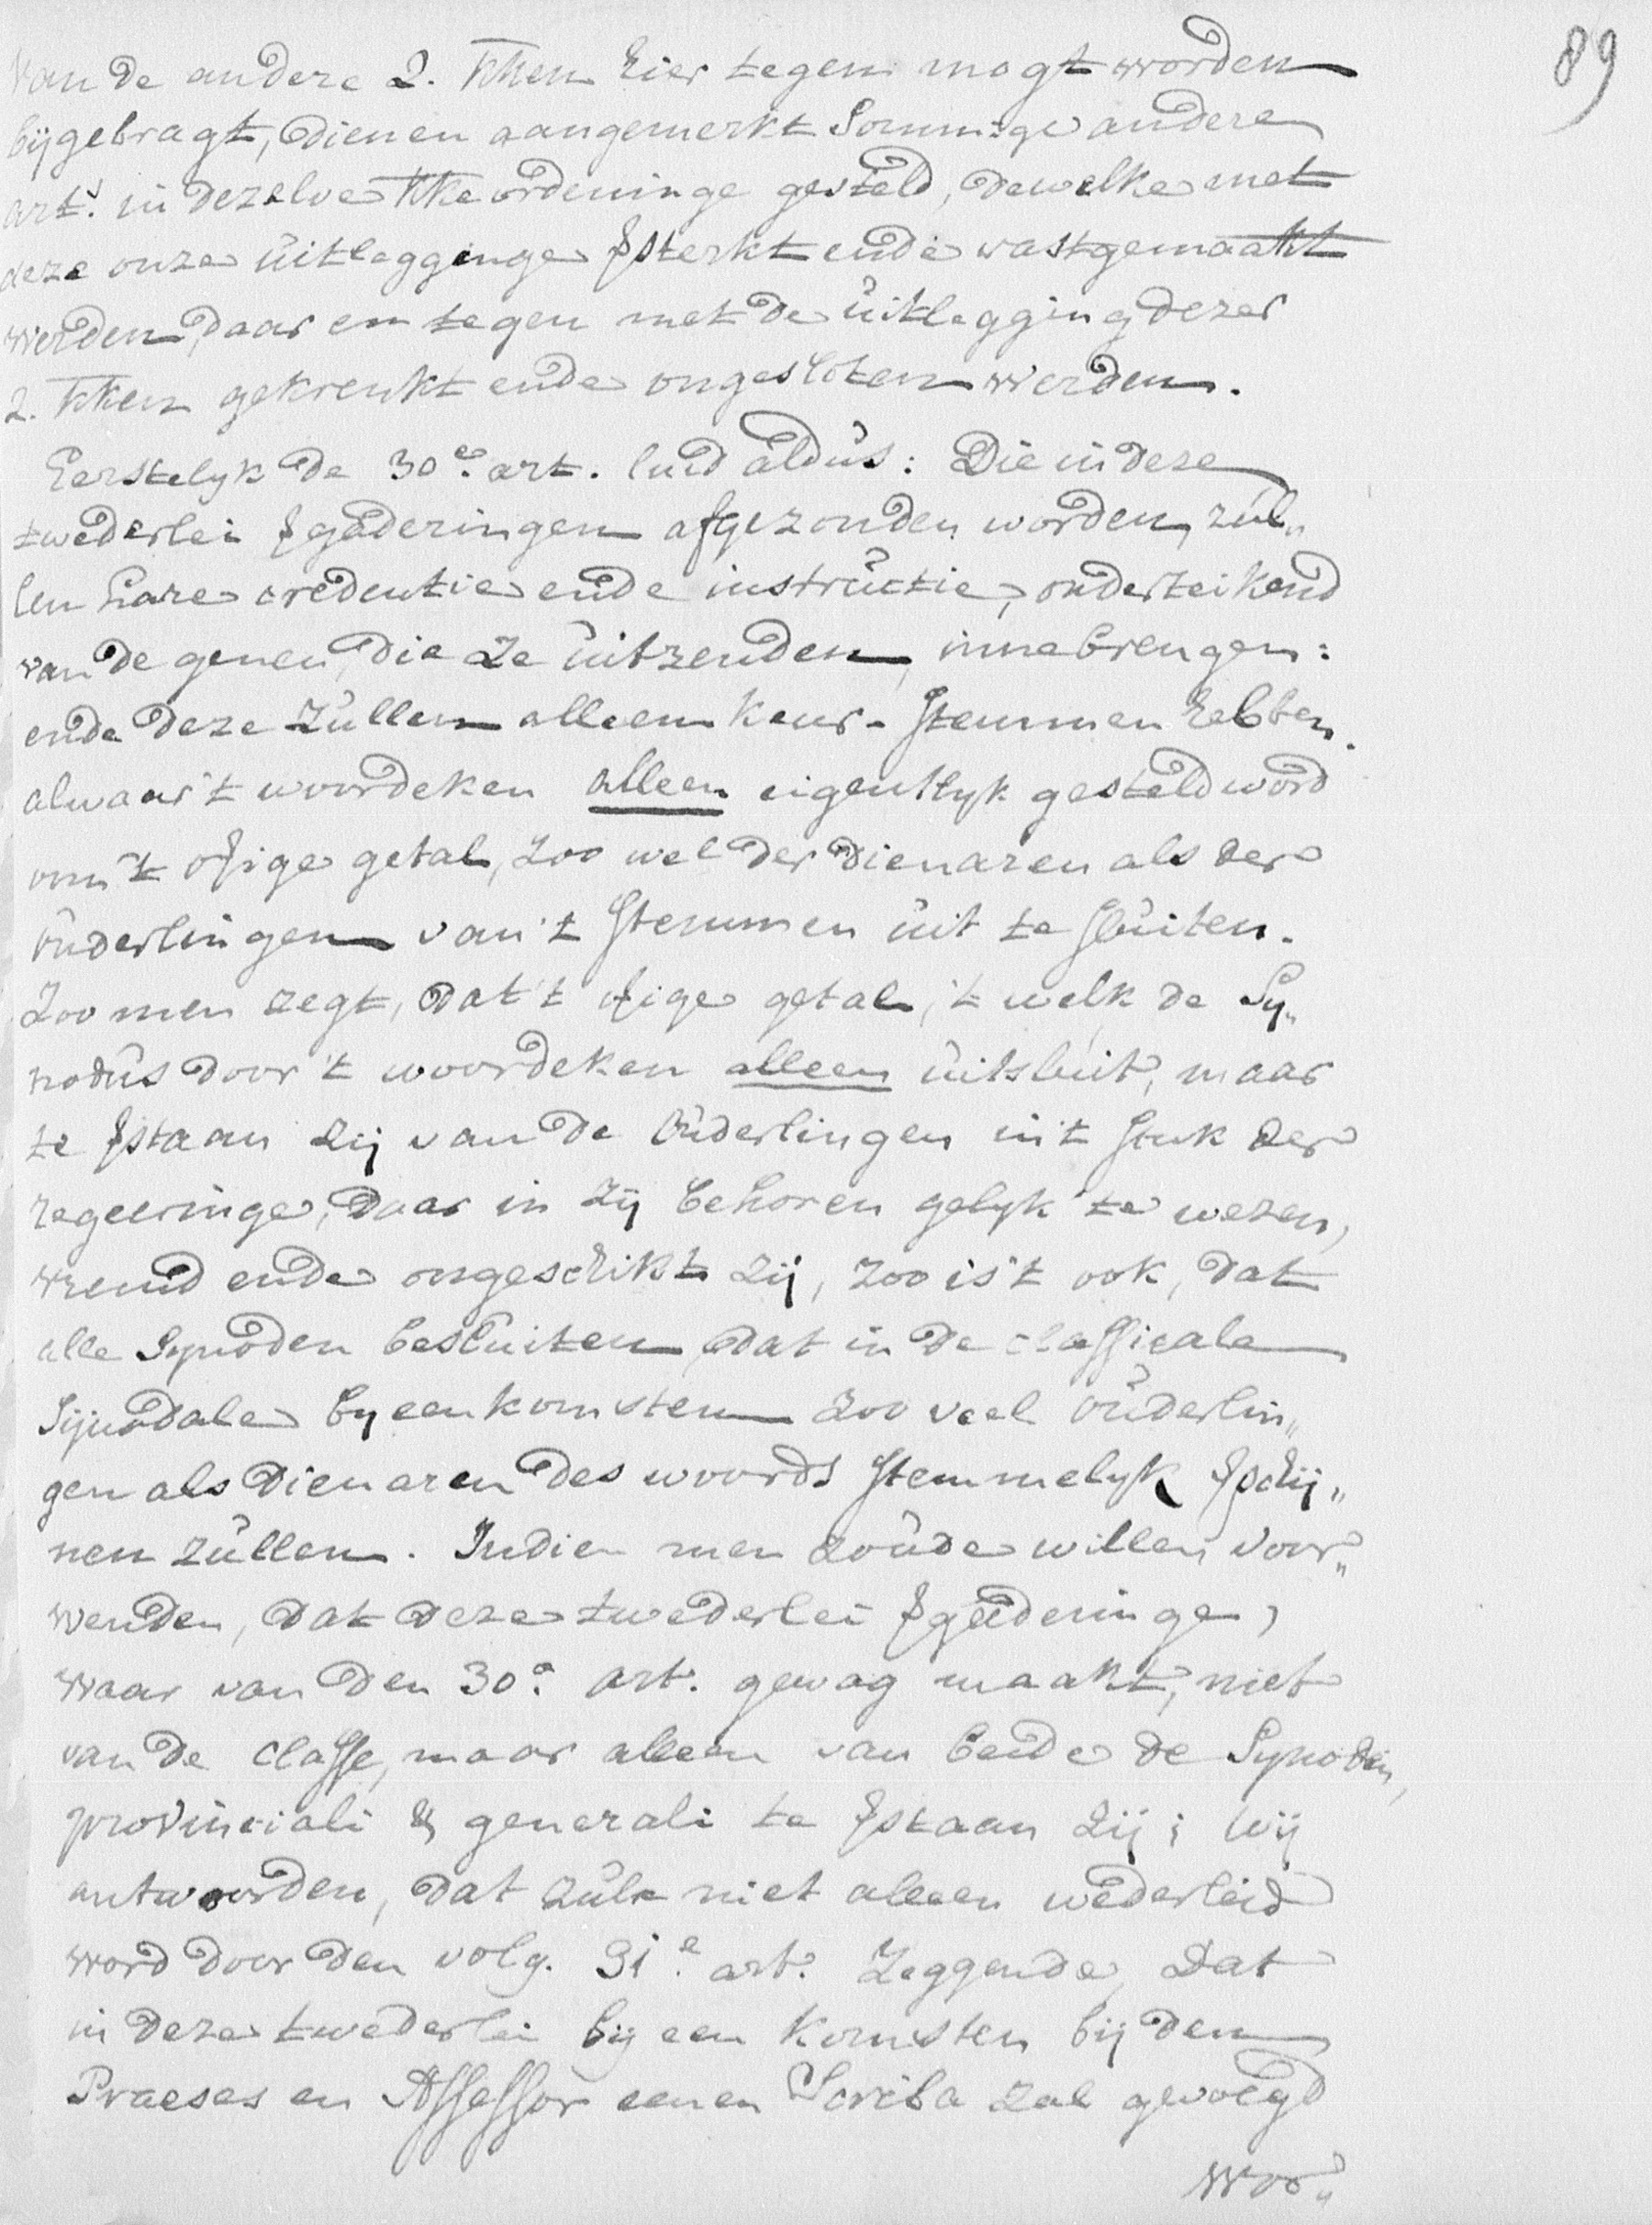 89
van de andere 2. kken hier tegen mogt worden
bijgebragt, dienen aangemerkt sommige andere
art.s in dezelve kke ordeninge gesteld, dewelke met
deze onze uitlegginge ꝟsterkt ende vastgemaakt
werden, daar en tegen met de uitlegging dezer
2. kken gekrenkt ende ongesloten werden.
Eerstelyk de 30e. art. luid aldus: Die in deze
twederlei ꝟgaderingen afgezonden worden, zul„
len hare credentie ende instructie, onderteikend
van de genen, die ze uitzenden, innebrengen:
ende deze zullen alleen keur-stemmen hebben.
alwaar 't woordeken alleen eigentlyk gesteld word
om 't oꝟige getal, zoo wel der dienaren als der
ouderlingen van 't stemmen uit te sluiten.
Zoo men zegt, dat 't oꝟige getal, 't welk de Sy„
nodus door 't woordeken alleen uitsluit, maar
te ꝟstaan zij van de ouderlingen in 't stuk der
regeeringe, daar in zij behoren gelyk te wezen,
vremd ende ongeschikt zij, zoo is 't ook, dat
alle Synoden besluiten, dat in de classicale
Sijnodale byeenkomsten zoo veel ouderlin„
gen als Dienaren des woords stemmelyk ꝟschij„
nen zullen. Indien men zoude willen voor„
wenden, dat deze twederlei ꝟgaderinge,
waar van den 30e. art. gewag maakt, niet
van de classe, maar alleen van beide de Synoden,
provinciali & generali te ꝟstaan zij; wij
antwoorden, dat zulx niet alleen wederleid
word door den volg. 31e. art. zeggende, Dat
in deze twederlei bij een komsten bij den
Praeses en Assessor eenen Scriba zal gevoegd
wor„